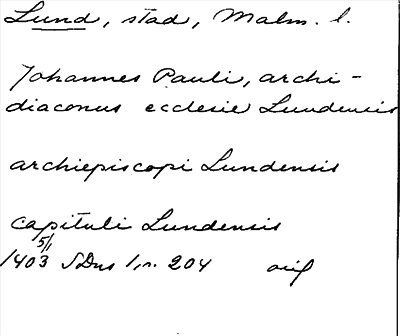 Lund, stad, Malm. l.
Johannes Pauli, archi-
diaconus ecclesie Lundensis
archiepiscopi Lundensis
capituli Lundensis
5/1
1403 SDns 1, n. 204 orig